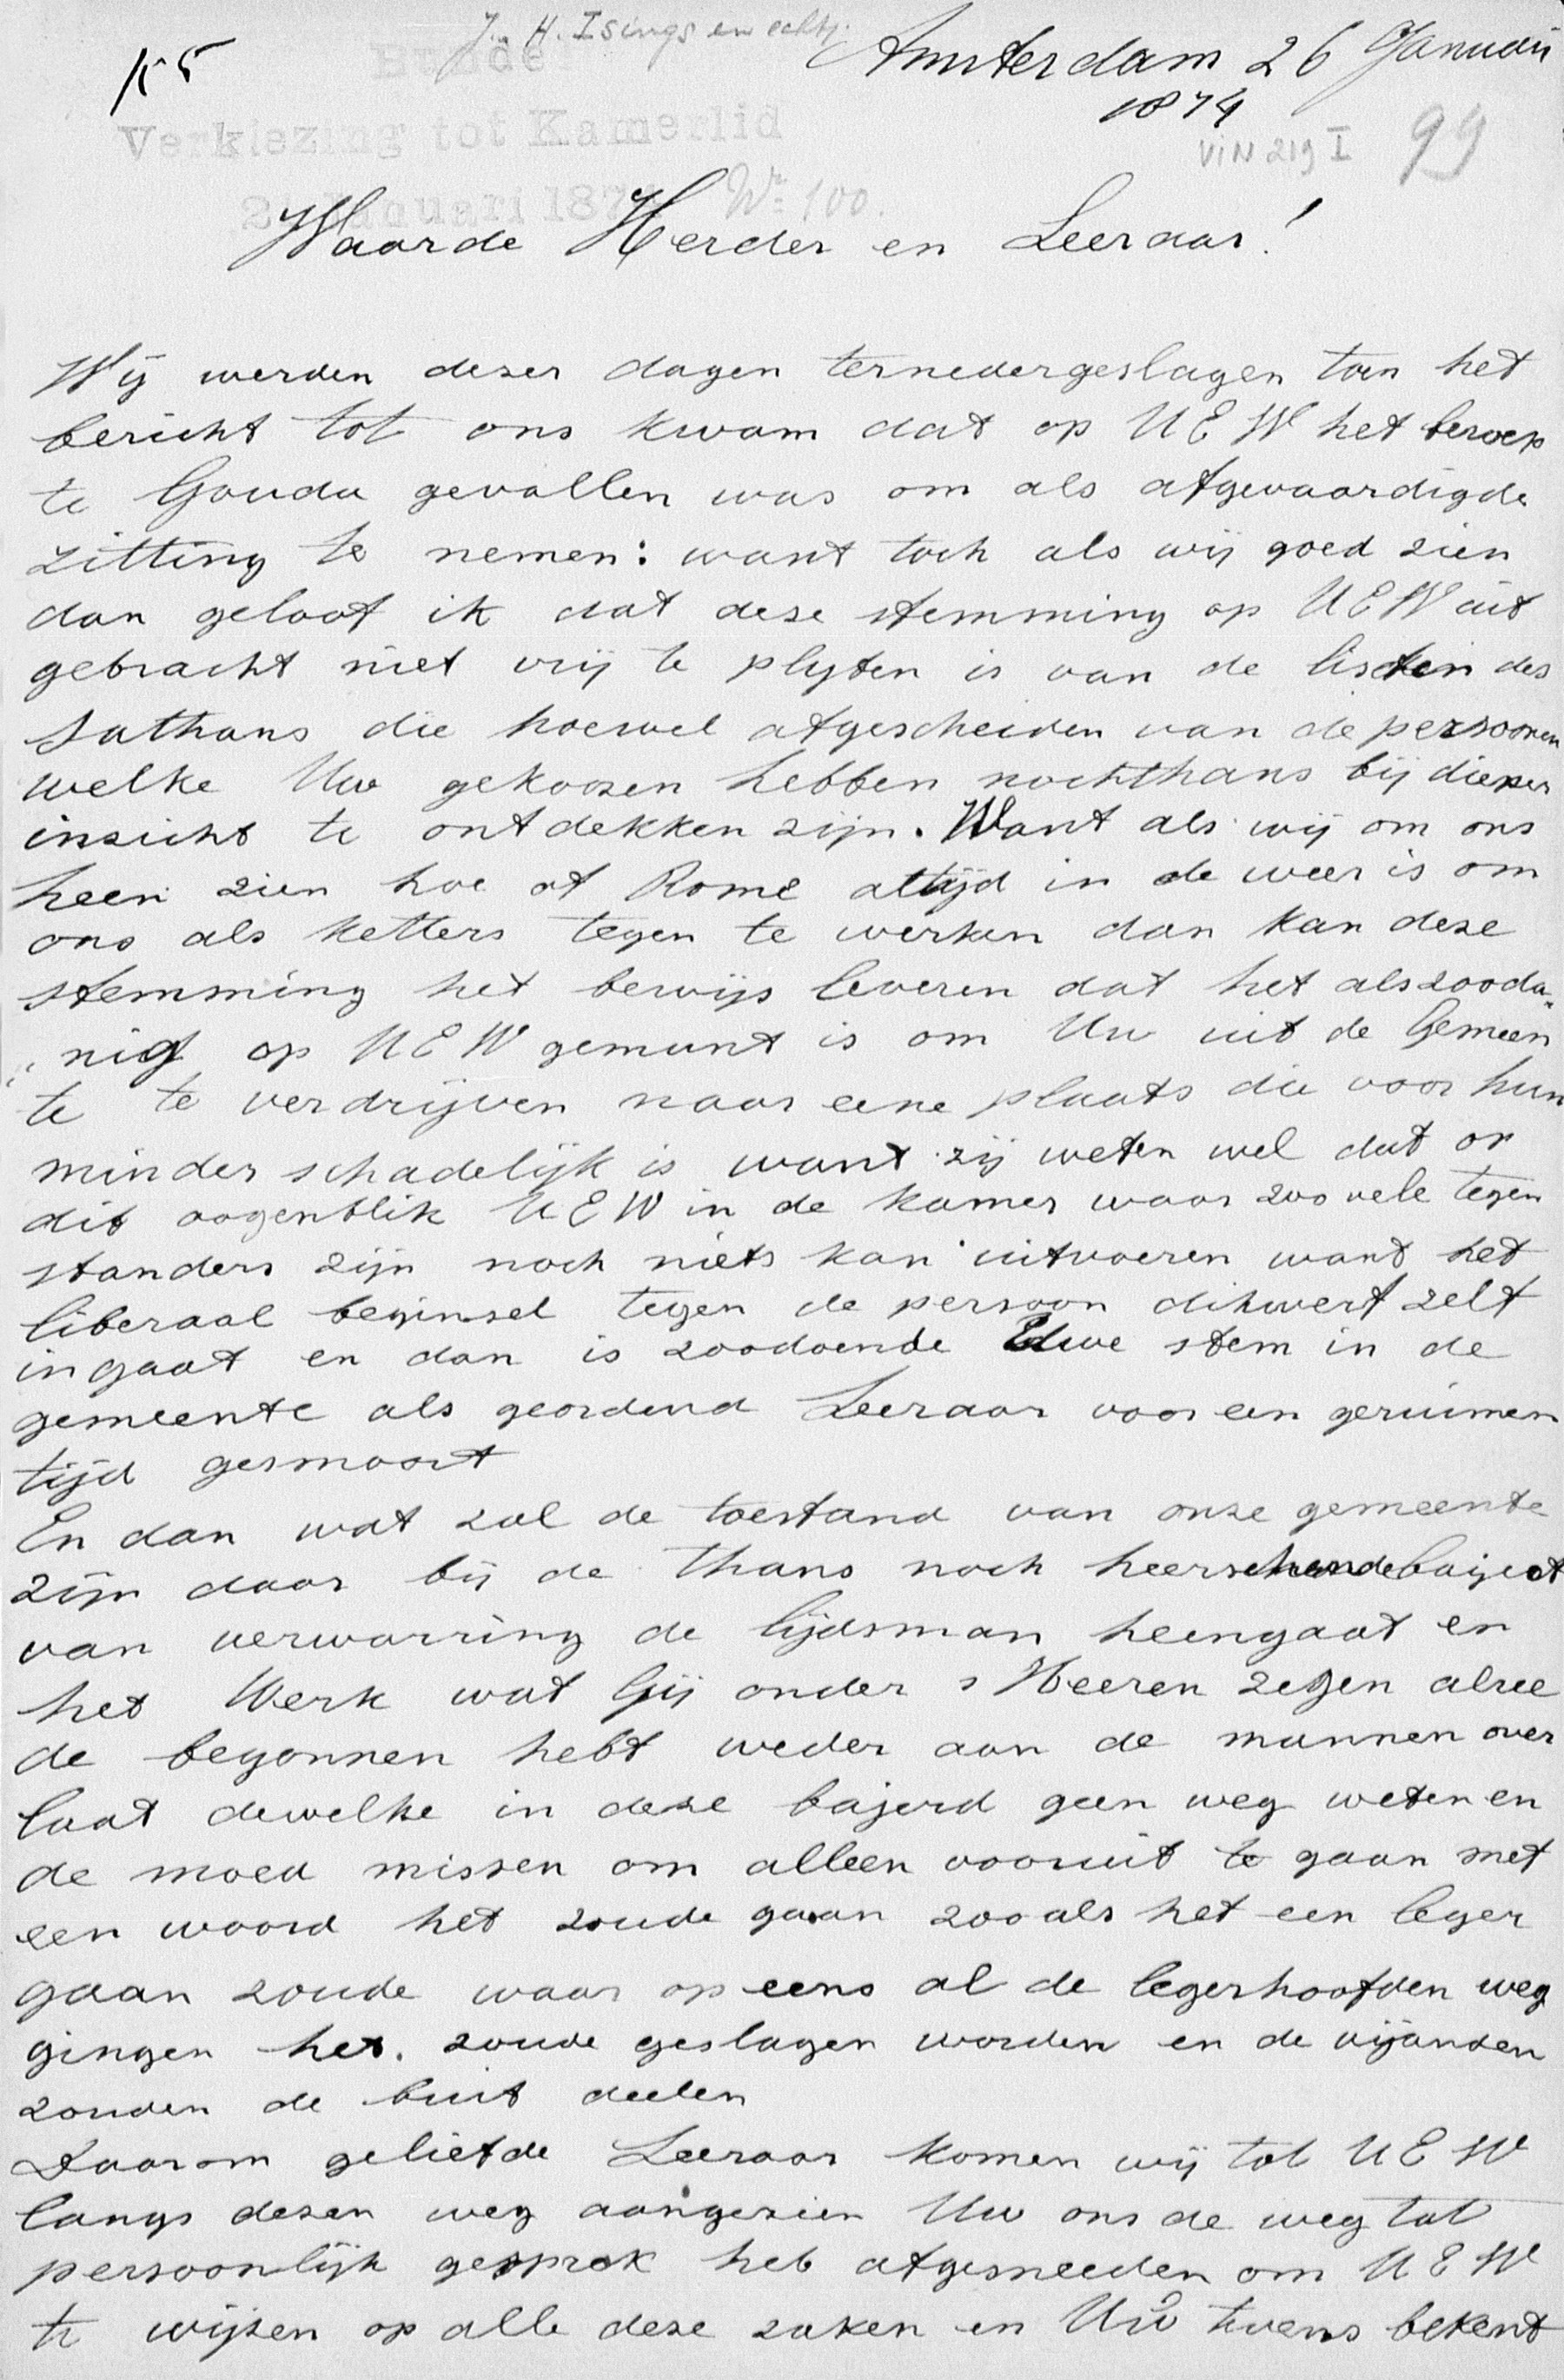 J. H. Isings en echtg.
K 5
Amsterdam 26 Januari
1874
Verkiezing tot Kamerlid
VIN 219 I 99
Januari 187 No 100.
Waarde Herder en Leeraar!
Wij werden dezer dagen ternedergeslagen toen het
bericht tot ons kwam dat op UEW het beroep
te Gouda gevallen was om als afgevaardigde
zitting te nemen: want toch als wij goed zien
dan geloof ik dat deze stemming op UEW uit
gebracht niet vrij te plyten is van de listen des
Sathans die hoewel afgescheiden van de persoonen
welke Uw gekoozen hebben nochthans bij dieper
inzicht te ontdekken zijn. Want als wij om ons
heen zien hoe of Rome altijd in de weer is om
ons als ketters tegen te werken dan kan deze
stemming het bewijs leveren dat het als zooda„
„nig op UEW gemunt is om Uw uit de Gemeen
te te verdrijven naar eene plaats die voor hun
minder schadelijk is want zij weten wel dat op
dit oogenblik UEW in de kamer waar zoo vele tegen
standers zijn noch niets kan uitvoeren want het
liberaal beginsel tegen de persoon dikwerf zelf
ingaat en dan is zoodoende Uwe stem in de
gemeente als geordend Leeraar voor een geruimen
tijd gesmoort
En dan wat zal de toestand van onze gemeente
zijn daar bij de thans noch heerschende baijert
van verwarring de lijdsman heengaat en
het Werk wat Gij onder s Heeren zegen alree
de begonnen hebt weder aan de mannen over
laat dewelke in deze bajerd geen weg weten en
de moed missen om alleen vooruit te gaan met
een woord het zoude gaan zooals het een leger
gaan zoude waar op eens al de legerhoofden weg
gingen het. zoude geslagen worden en de vijanden
zouden de buit deelen
Daarom geliefde Leeraar komen wij tot UEW
langs dezen weg aangezien Uw ons de weg tot
persoonlijk gesprek heb afgesneeden om UEW
te wijzen op alle deze zaken en Uw tevens bekent